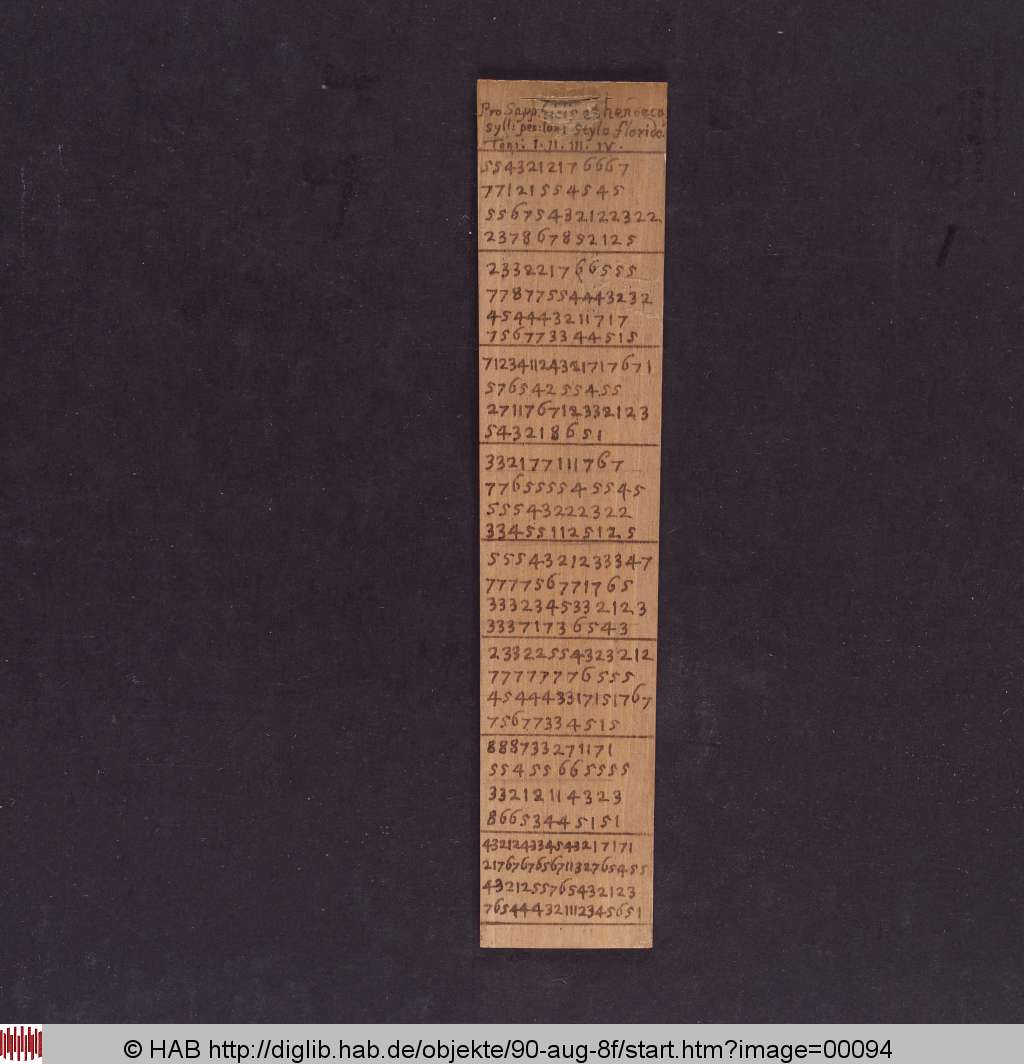 Pro Sapphicis et hendeca
syll: pes: loni stylo florido
Toni. I. II. III. IV.
55432121766 67
77121554545
5567543212 2322
23786785212 5
233221766555
7787755444 3232
45444321 1717
75677334 4515
71234112432171 7671
57654255455
27117671233 2123
5432186 51
3321771 11767
77655554 5545
5554322 2322
3345511 25125
5554321 233347
7777567 71765
3332345 332123
3337173 6543
2332255 4323212
7777777 6555
4544433 17151767
7567733 4515
88873327 1171
55455665555
332121 14323
8665344 5151
432124334543217171
217676765671 132765455
4321255765432123
765444321112345651
© HAB http://diglib.hab.de/objekte/90-aug-8f/start.htm?image=00094